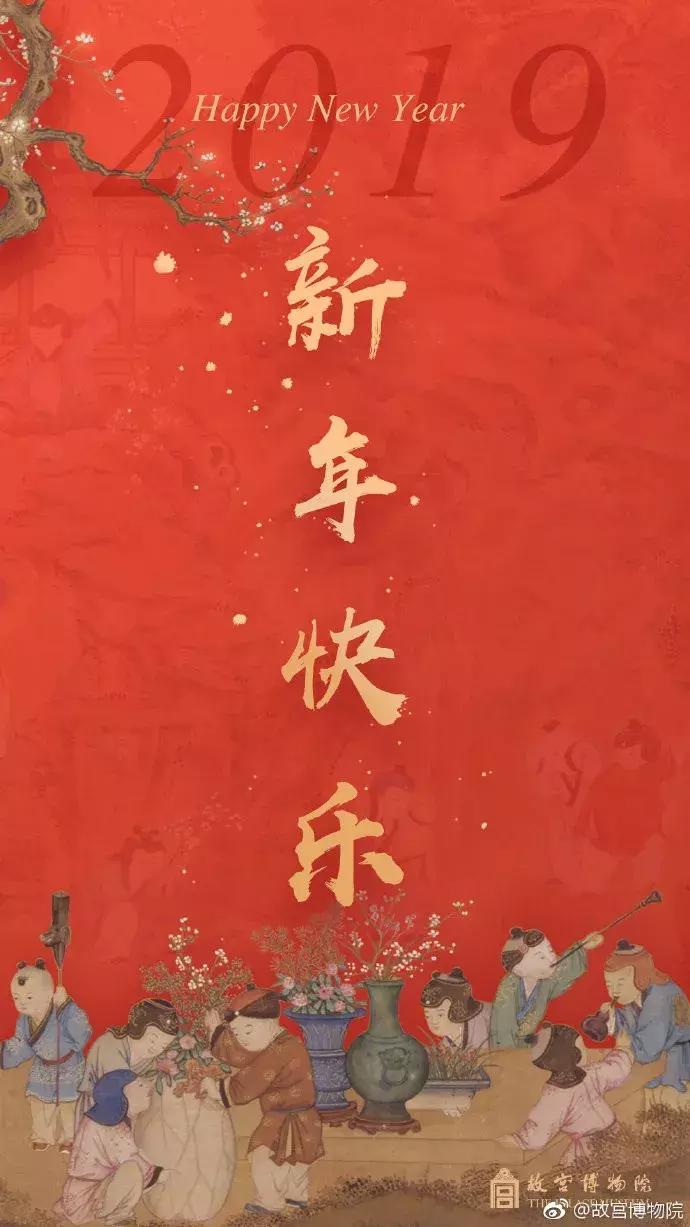 2019
Happy New Year
新年快乐
故宫博物院
THE PALACE MUSEUM
@故宫博物院